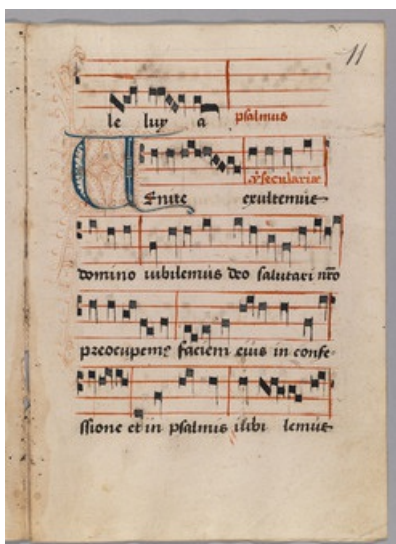 11
le luy a psalmus
Venite exultemus
domino iubilemus deo salutari nro
preocupem9 faciem eius in confe-
ssione et in psalmis iubi lemus